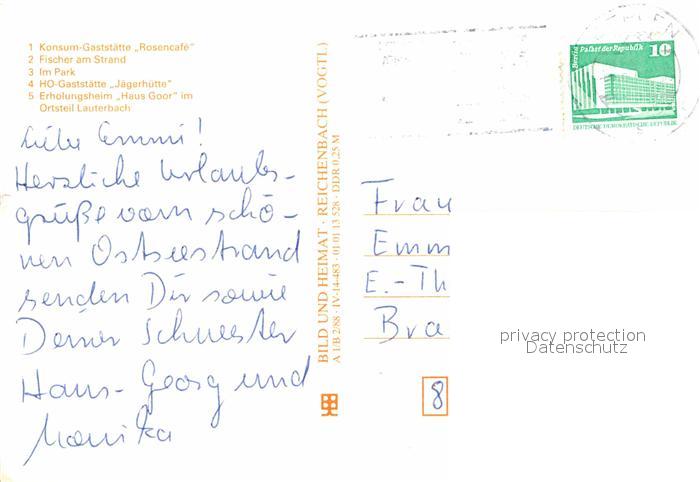 1 Konsum-Gaststätte „Rosencafé"
2 Fischer am Strand
3 Im Park
4 HO-Gaststätte „Jägerhütte"
5 Erholungsheim „Haus Goor" im
Ortsteil Lauterbach
Liebe Emmi!
Herzliche Urlaubs-
grüße vom schö-
nen Ostseestrand
senden Dir sowie
Deiner Schwester
Hans-Georg und
Monika
BILD UND HEIMAT · REICHENBACH (VOGTL)
A 1/B 2/88 · IV-14-483 · 01 01 13 528 · DDR 0,25 M
Berlin Palast der Republik 10
DEUTSCHE DEMOKRATISCHE REPUBLIK
Frau
Emm
E.-Th
Bra
8
privacy protection
Datenschutz